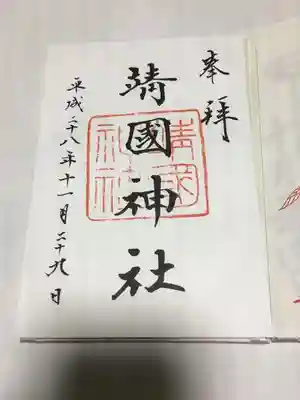 奉拝
靖國神社
平成二十八年十一月二十九日
靖國神社